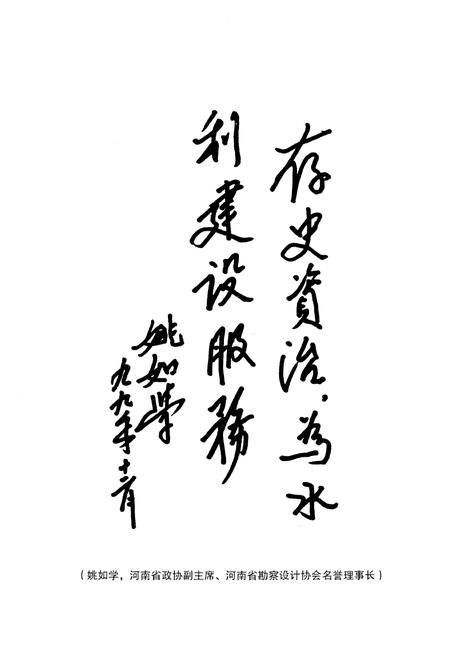 存史資治，為水
利建设服務
姚如学
九九年十二月
（姚如学，河南省政协副主席、河南省勘察设计协会名誉理事长）